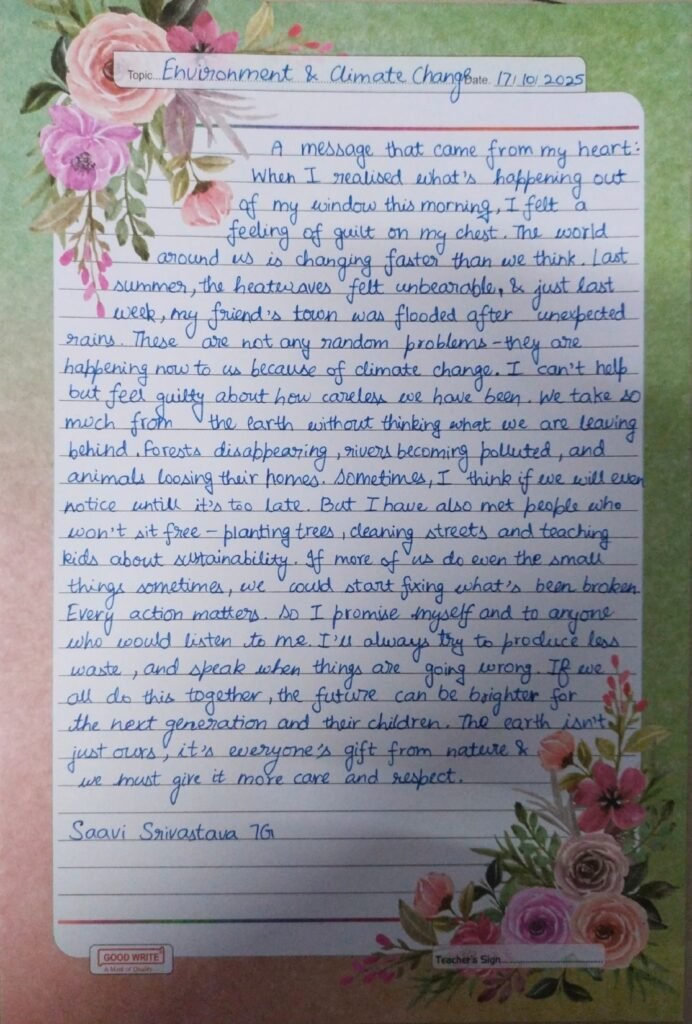 Topic... Environment & Climate Change Date. 17/10/2025
A message that came from my heart:
When I realised what's happening out
of my window this morning, I felt a
feeling of guilt on my chest. The world
around us is changing faster than we think. Last
summer, the heatwaves felt unbearable, & just last
week, my friend's town was flooded after unexpected
rains. These are not any random problems - they are
happening now to us because of climate change. I can't help
but feel guilty about how careless we have been. We take so
much from the earth without thinking what we are leaving
behind. Forests disappearing, rivers becoming polluted, and
animals loosing their homes. Sometimes, I think if we will even
notice untill it's too late. But I have also met people who
won't sit free - planting trees, cleaning streets and teaching
kids about sustainability. If more of us do even the small
things sometimes, we could start fixing what's been broken.
Every action matters. So I promise myself and to anyone
who would listen to me. I'll always try to produce less
waste, and speak when things are going wrong. If we
all do this together, the future can be brighter for
the next generation and their children. The earth isn't
just ours, it's everyone's gift from nature &
we must give it more care and respect.
Saavi Srivastava 7G
GOOD WRITE
A Mark of Quality
Teacher's Sign...